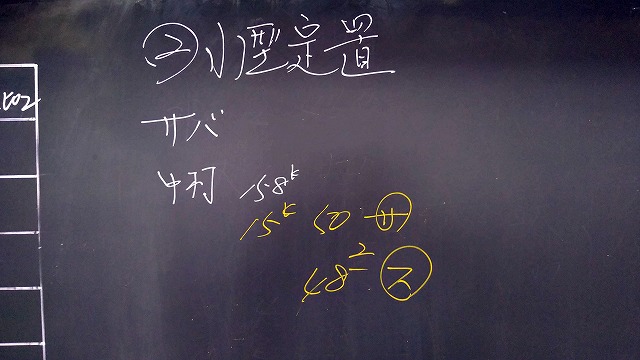 ② 小型定置
102
サバ
中村 158k
15k 50 サ
48 2 ス